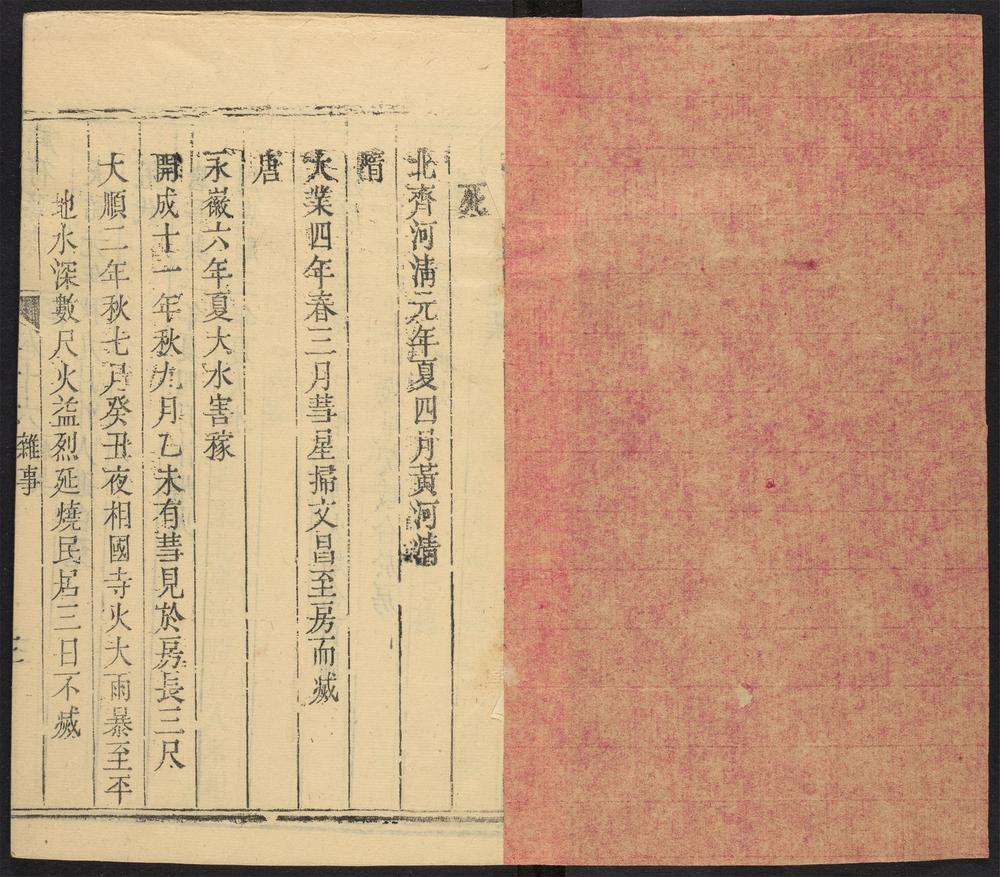 北齊河清元年夏四月黃河清
隋
大業四年春三月彗星掃文昌至房而滅
唐
永徽六年夏大水害稼
開成十一年秋九月乙未有彗見於房長三尺
大順二年秋七月癸丑夜相國寺火大雨暴至平
地水深數尺火益烈延燒民居三日不滅
雜事